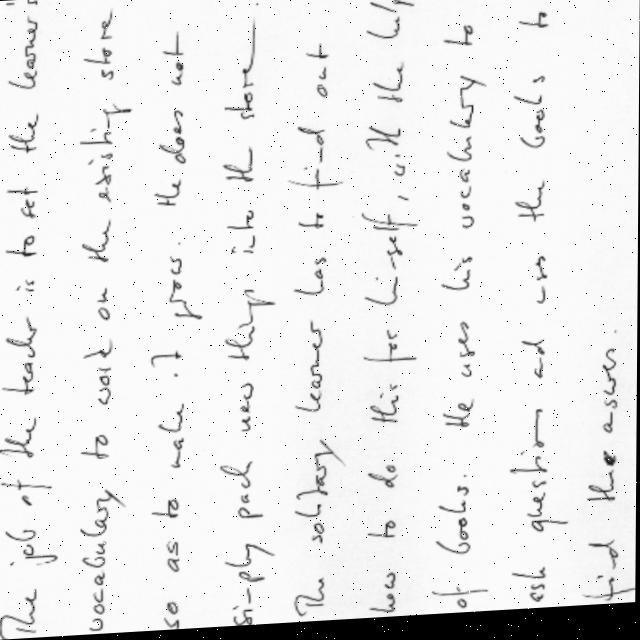 The job of the teacher is to set the learner's
vocabulary to work on the existing store
so as to make it grow. He does not
simply pack new things into the store.
The solitary learner has to find out
how to do this for himself, with the help
of books. He uses his vocabulary to
ask questions and uses the books to
find the answer.